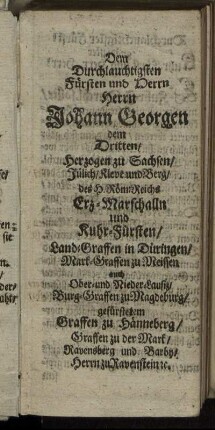 Dem
Dürchlauchtigsten
Fürsten und Herrn
Herrn
Johann Georgen
dem
Dritten/
Herzogen zu Sachsen/
Jülich/ Kleve und Berg/
des H. Röm. Reichs
Erz-Marschalln
und
Kuhr-Fürsten/
Land-Graffen in Düringen/
Mark-Graffen zu Meissen
auch
Ober- und Nieder-Lausiz/
Burg-Graffen zu Magdeburg/
gefürstetem
Graffen zu Hänneberg/
Graffen zu der Mark/
Ravensberg und Barby/
Herrn zu Ravenstein ꝛc.